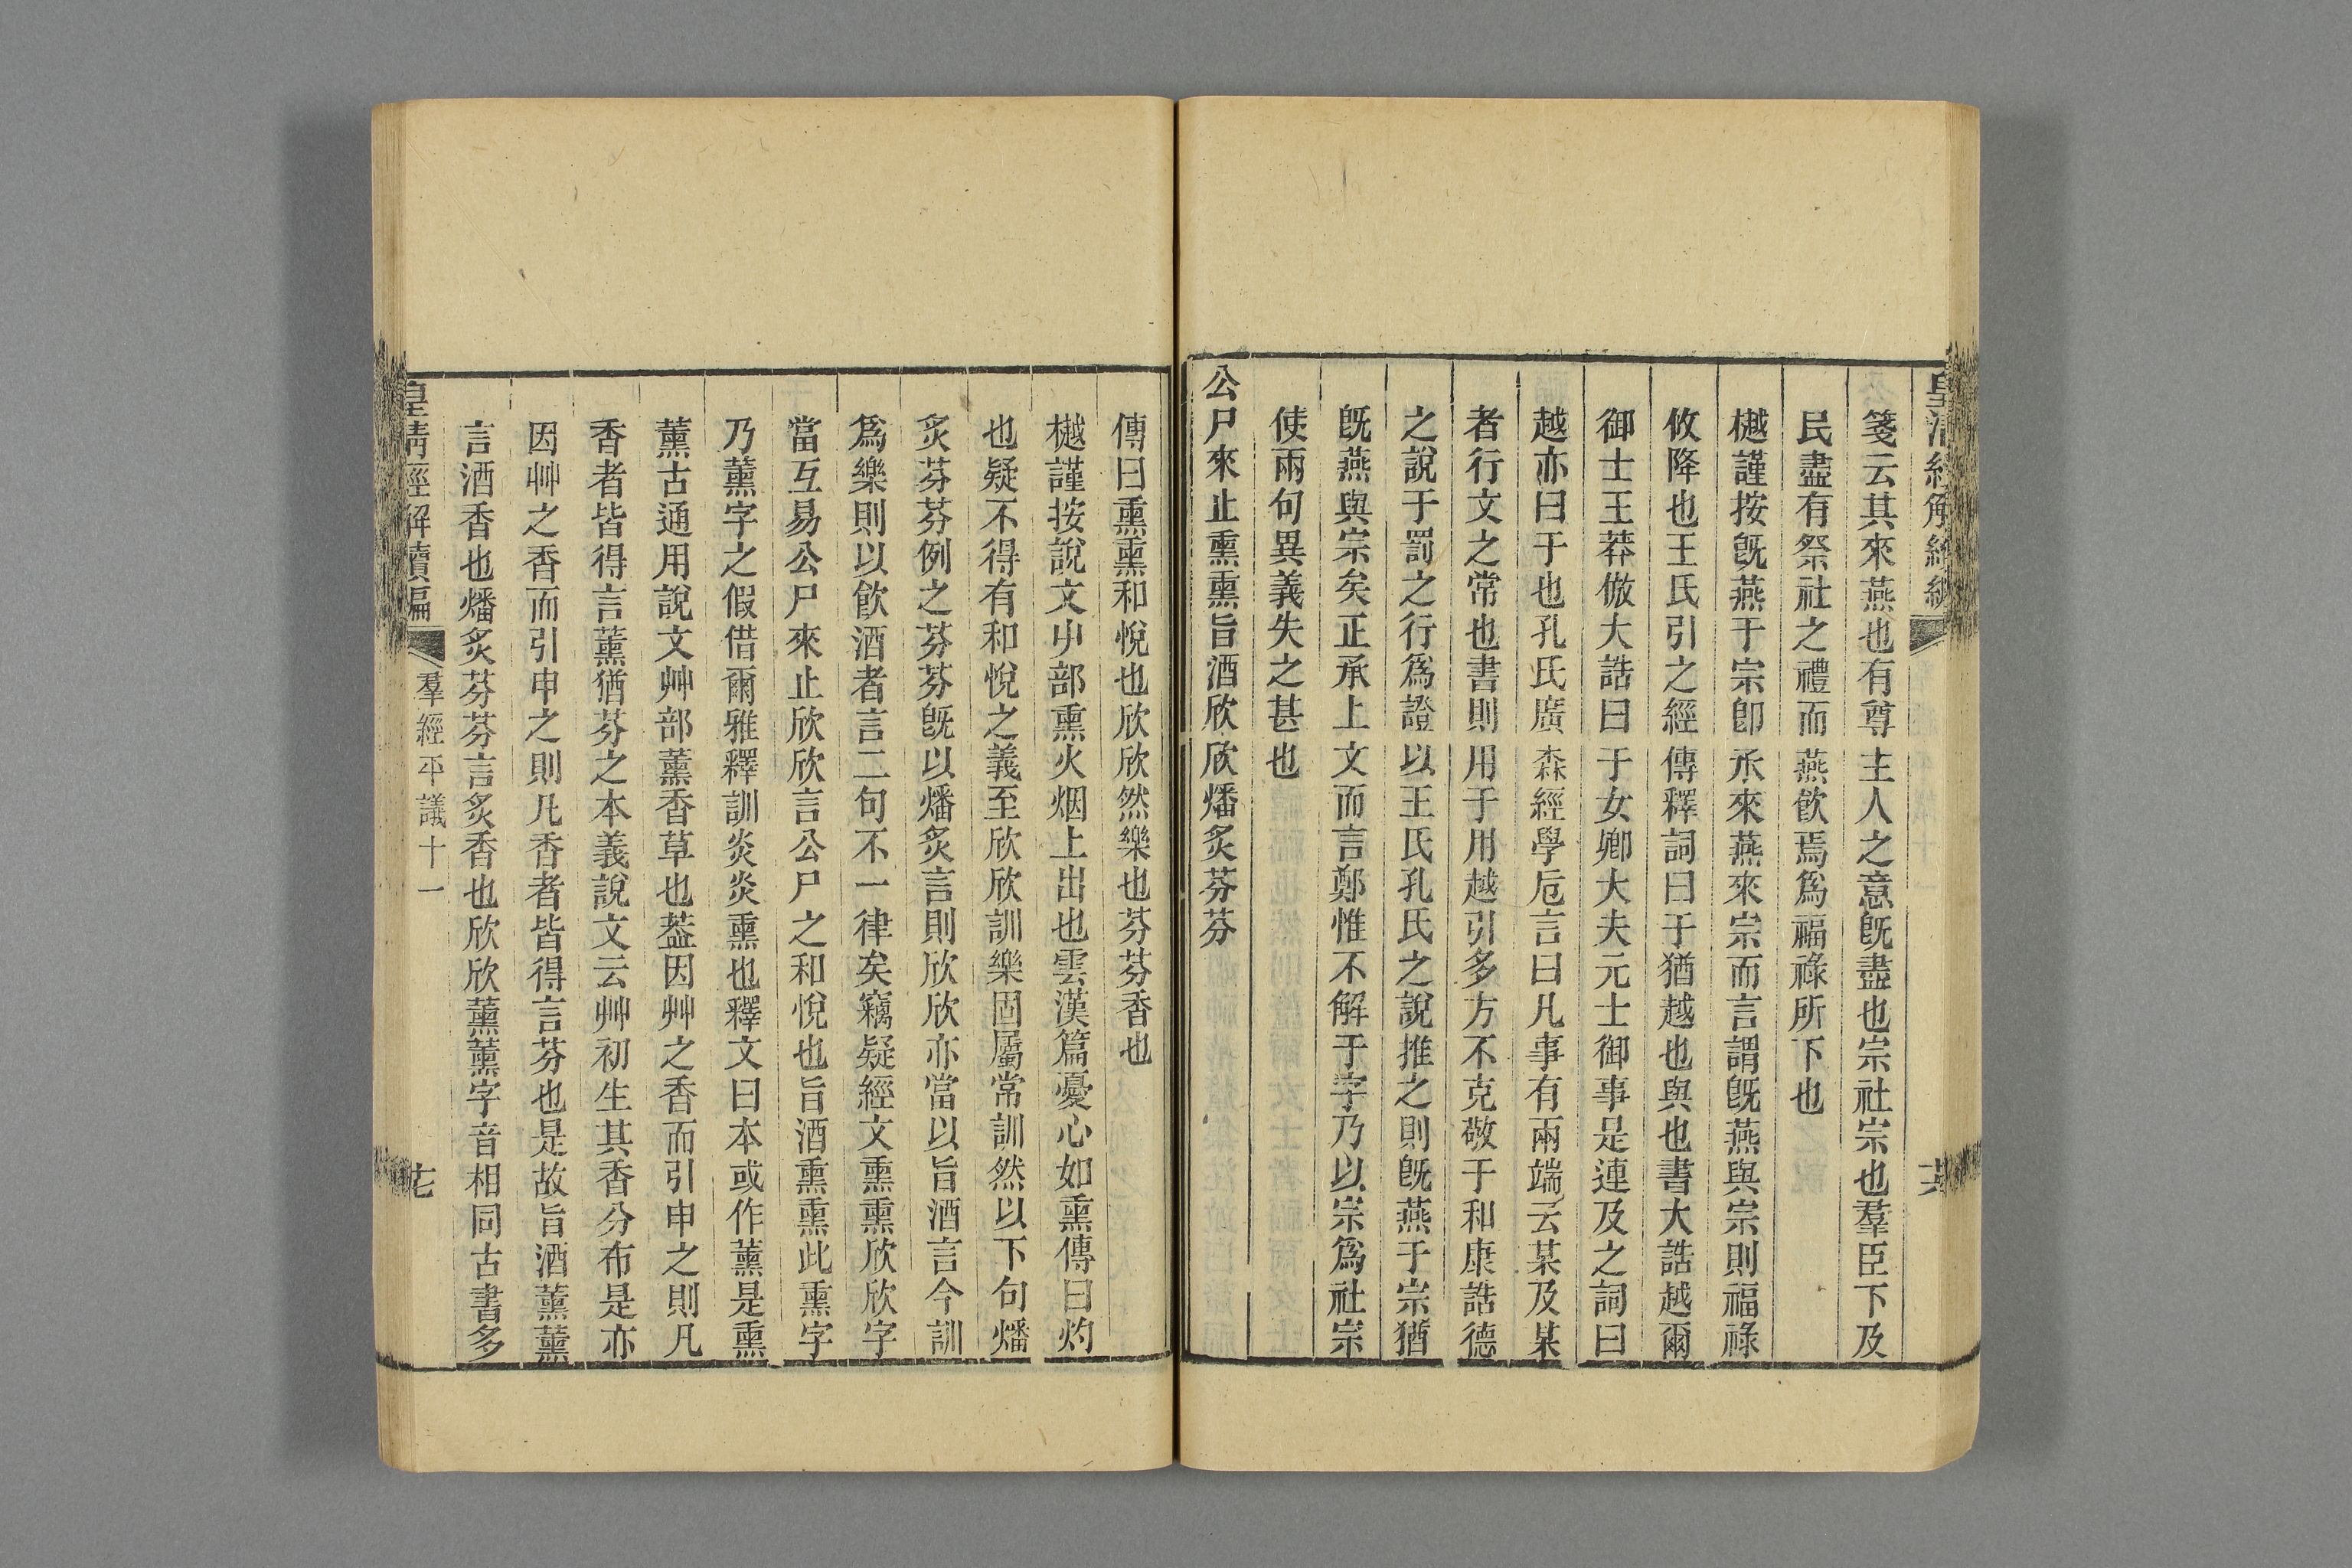 箋云其來燕也有尊主人之意旣盡也宗社宗也羣臣下及
民盡有祭社之禮而燕飮焉爲福祿所下也
樾謹按旣燕于宗卽承來燕來宗而言謂旣燕與宗則福祿
攸降也王氏引之經傳釋詞曰于猶越也與也書大誥越爾
御士王莽倣大誥曰于女卿大夫元士御事是連及之詞曰
越亦曰于也孔氏廣森經學卮言曰凡事有兩端云某及某
者行文之常也書則用于用越引多方不克敬于和康誥德
之說于罰之行爲證以王氏孔氏之說推之則旣燕于宗猶
旣燕與宗矣正承上文而言鄭惟不解于字乃以宗爲社宗
使兩句異義失之甚也
公尸來止熏熏旨酒欣欣燔炙芬芬
傳曰熏熏和悅也欣欣然樂也芬芬香也
樾謹按說文屮部熏火烟上出也雲漢篇憂心如熏傳曰灼
也疑不得有和悅之義至欣欣訓樂固屬常訓然以下句燔
炙芬芬例之芬芬旣以燔炙言則欣欣亦當以旨酒言今訓
爲樂則以飮酒者言二句不一律矣竊疑經文熏熏欣欣字
當互易公尸來止欣欣言公尸之和悅也旨酒熏熏此熏字
乃薰字之假借爾雅釋訓炎炎熏也釋文曰本或作薰是熏
薰古通用說文艸部薰香草也葢因艸之香而引申之則凡
香者皆得言薰猶芬之本義說文云艸初生其香分布是亦
因艸之香而引申之則凡香者皆得言芬也是故旨酒薰薰
言酒香也燔炙芬芬言炙香也欣欣薰薰字音相同古書多
皇淸經解續編
羣經平議十一